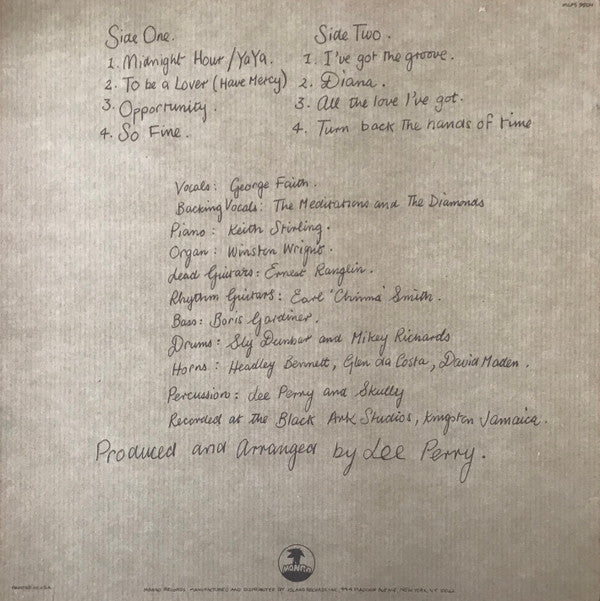 MLPS 9504
Side One.
1. Midnight Hour / YaYa.
2. To be a Lover (Have Mercy)
3. Opportunity.
4. So Fine.
Side Two.
1. I've got the groove.
2. Diana.
3. All the love I've got.
4. Turn back the hands of time
Vocals: George Faith.
Backing Vocals: The Meditations and The Diamonds
Piano: Keith Stirling.
Organ: Winston Wright.
Lead Guitars: Ernest Ranglin.
Rhythm Guitars: Earl 'Chinna' Smith.
Bass: Boris Gardiner.
Drums: Sly Dunbar and Mikey Richards
Horns: Headley Bennett, Glen da Costa, David Maden.
Percussion: Lee Perry and Skully
Recorded at the Black Ark Studios, Kingston Jamaica.
Produced and Arranged by Lee Perry.
MANGO
PRINTED IN U.S.A.
MANGO RECORDS MANUFACTURED AND DISTRIBUTED BY ISLAND RECORDS INC. MADISON AVENUE, NEW YORK, NY